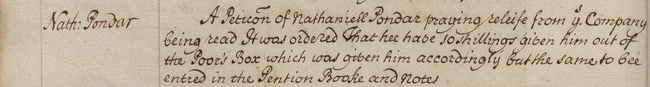 Nath: Pondar
A Peticon of Nathaniell Pondar praying releife from y.e Company
being read It was ordered That hee have 50 shillings given him out of
the Poor's Box which was given him accordingly but the same to bee
entred in the Pention Booke and Notes